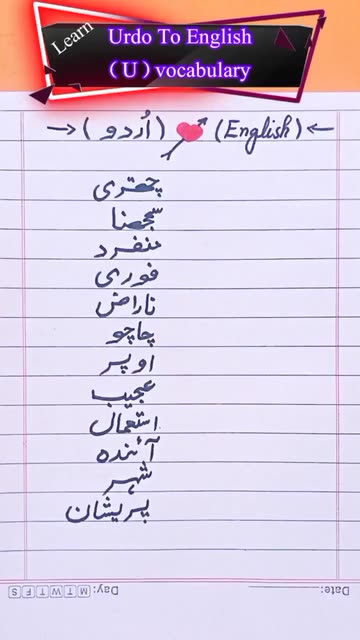 Learn
Urdo To English
( U ) vocabulary
← (English) (اُردو) →
چھتری
سمجھنا
منفرد
فوری
ناراض
چاچو
اوپر
عجیب
استعمال
آئندہ
شہر
پریشان
Day: M T W T F S
Date: